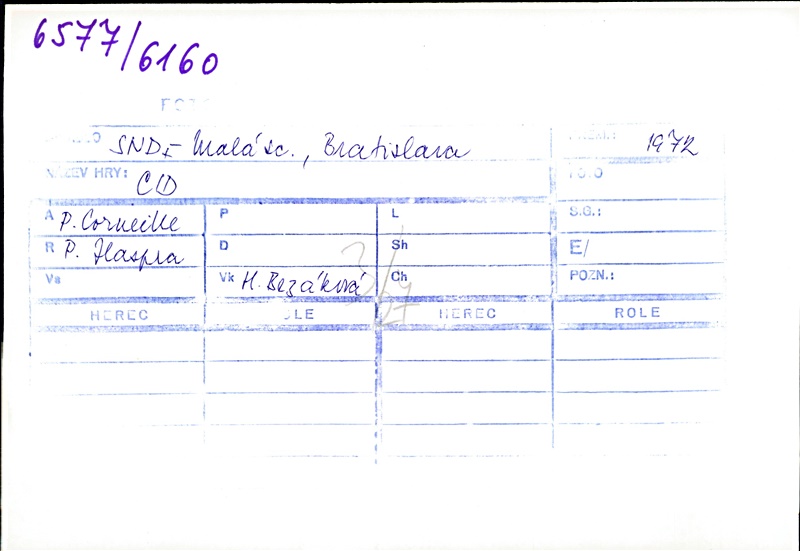 6577/6160
FOTO
SND - Malá sc., Bratislava PREM.: 1972
NÁZEV HRY: CID FOTO
A P. Corneille P L S.G.:
R P. Haspra D Sh E/
Va Vk H. Bezáková Ch POZN.:
HEREC ROLE HEREC ROLE